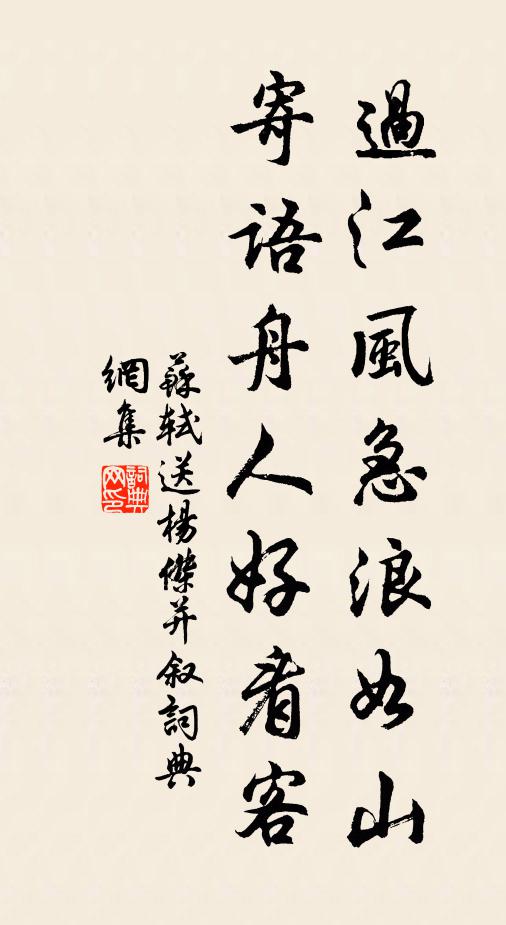 過江風急浪如山
寄語舟人好看客
蘇軾送楊傑并叙詞典
網集
詞典網印